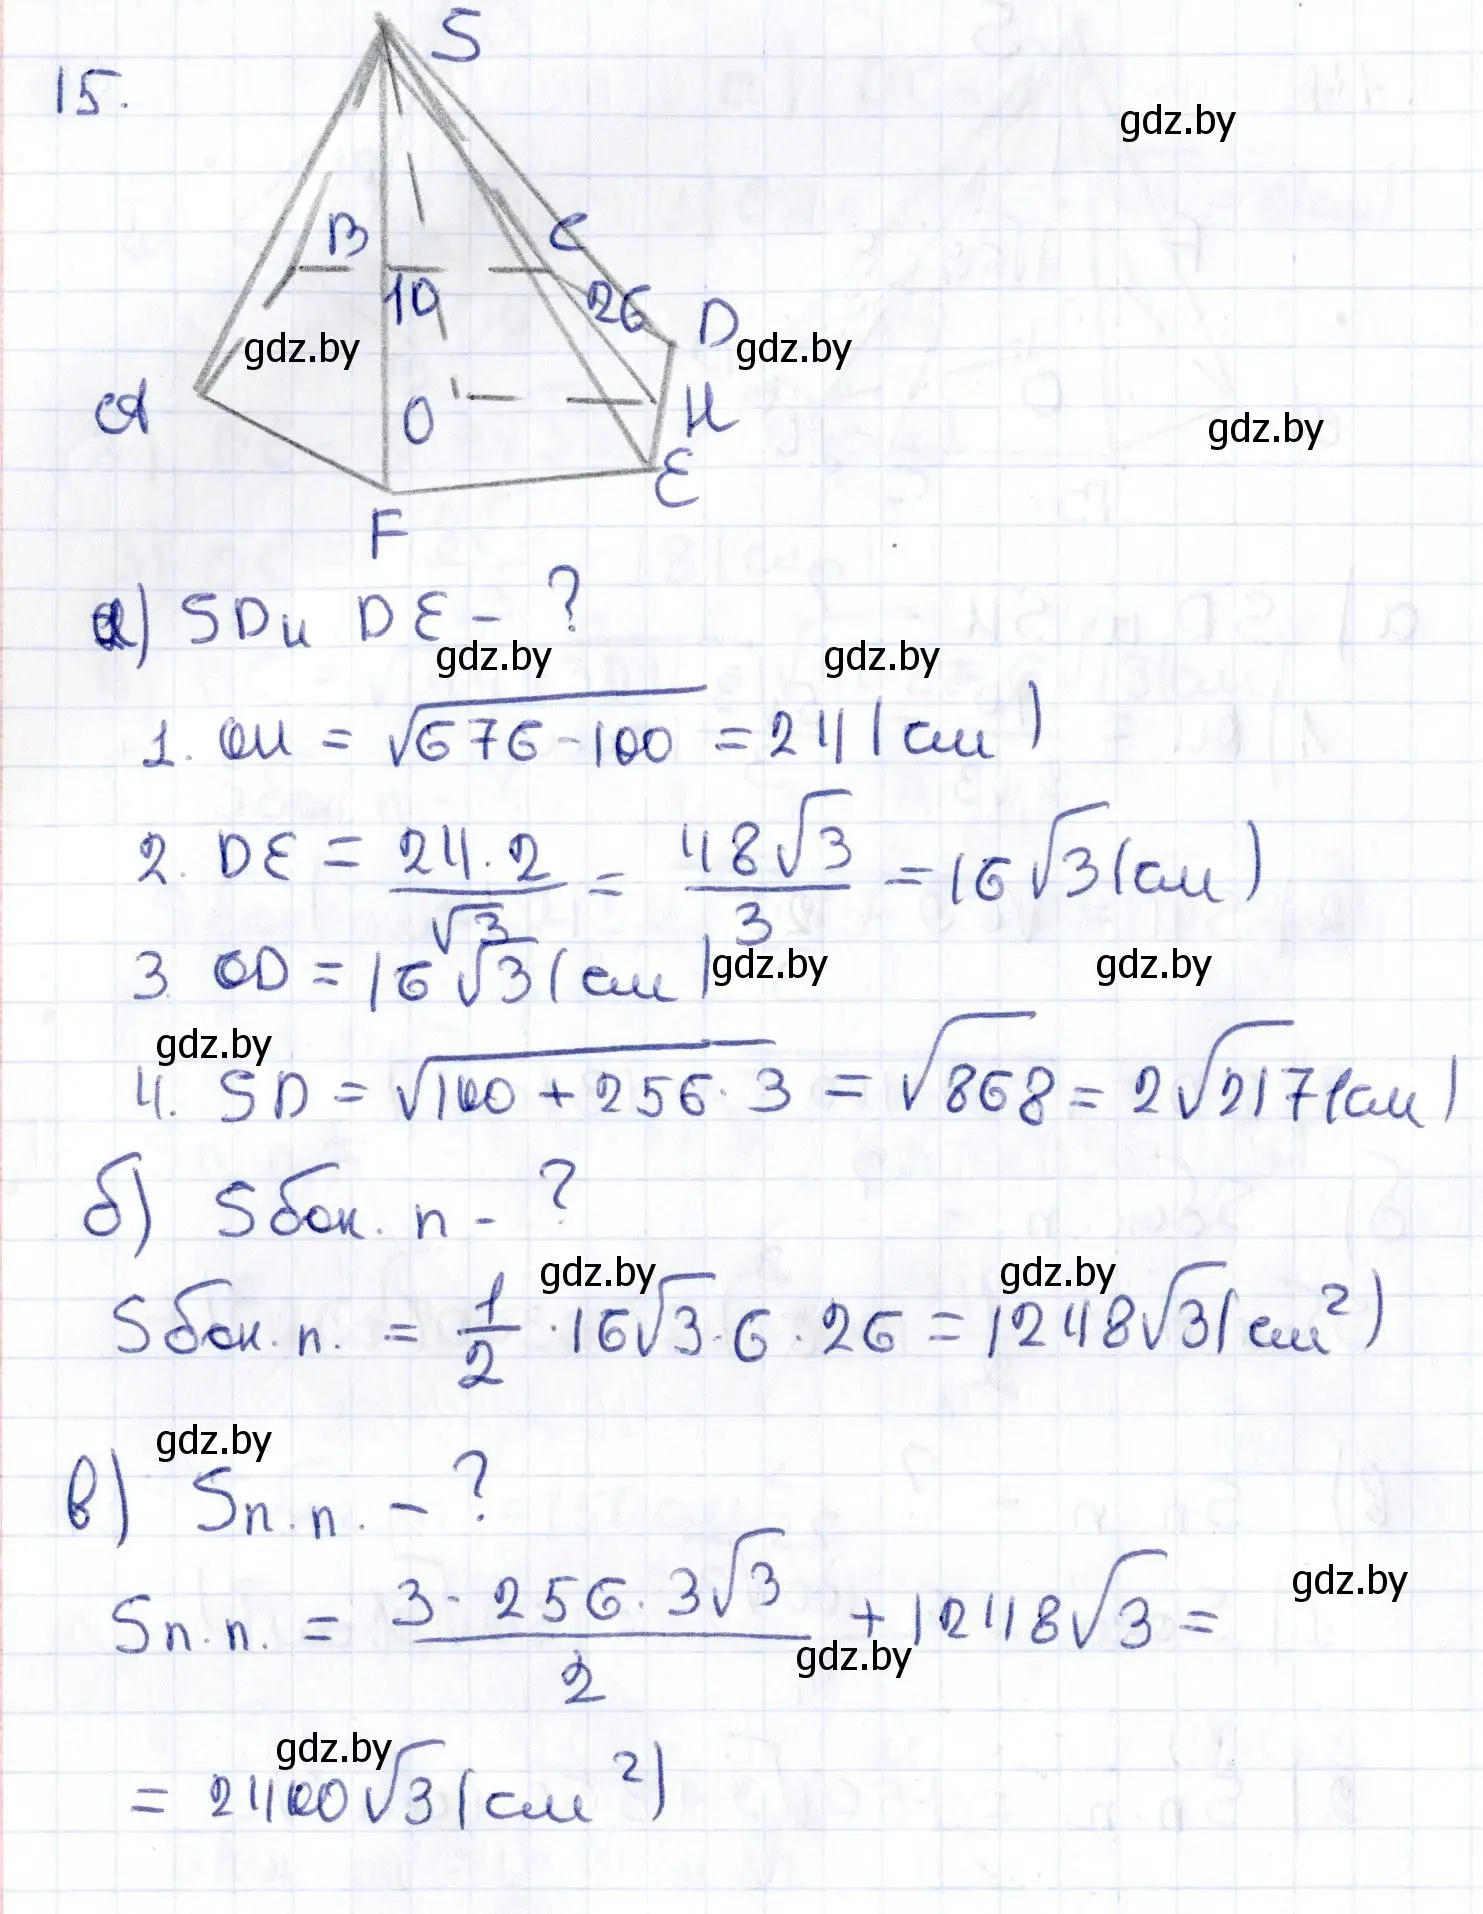 15.
S
gdz.by
B
C
10
26
D
gdz.by
gdz.by
A
O
H
gdz.by
E
F
а) SD и DE - ?
gdz.by
gdz.by
1. OH = √676-100 = 24 (см)
2. DE = 24·2/√3 = 48√3/3 = 16√3 (см)
3. OD = 16√3 (см)
gdz.by
gdz.by
gdz.by
4. SD = √100 + 256·3 = √868 = 2√217 (см)
б) Sбок. п - ?
gdz.by
gdz.by
Sбок. п. = 1/2 · 16√3 · 6 · 26 = 1248√3 (см²)
gdz.by
в) Sп. п. - ?
gdz.by
Sп. п. = 3·256·3√3/2 + 1248√3 =
gdz.by
gdz.by
= 2400√3 (см²)